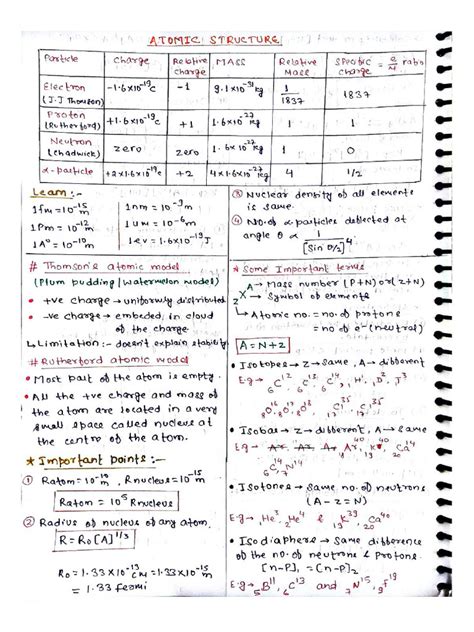 ATOMIC STRUCTURE
Particle | Charge | Relative charge | MASS | Relative Mass | Specific charge = e/m ratio
Electron (J.J Thomson) | -1.6x10⁻¹⁹c | -1 | 9.1x10⁻³¹kg | 1/1837 | 1837
Proton (Rutherford) | +1.6x10⁻¹⁹c | +1 | 1.6x10⁻²⁷kg | 1 | 1
Neutron (Chadwick) | zero | zero | 1.6x10⁻²⁷kg | 1 | 0
α-particle | +2x1.6x10⁻¹⁹c | +2 | 4x1.6x10⁻²⁷kg | 4 | 1/2
Learn :-
1fm = 10⁻¹⁵m 1nm = 10⁻⁹m
1Pm = 10⁻¹²m 1um = 10⁻⁶m
1A° = 10⁻¹⁰m 1ev = 1.6x10⁻¹⁹J
# Thomson's atomic model
(Plum pudding/watermelon model)
• +ve charge → uniformly distributed
• -ve charge → embeded in cloud
of the charge.
↳ Limitation :- doesn't explain stability
# Rutherford atomic model
• Most part of the atom is empty.
• All the +ve charge and mass of
the atom are located in a very
small space called nucleus at
the centre of the atom.
* Important points :-
① Ratom = 10⁻¹⁰m, Rnucleus = 10⁻¹⁵m
Ratom = 10⁵ Rnucleus
② Radius of nucleus of any atom.
R = R₀[A]^1/3
R₀ = 1.33x10⁻¹³cm = 1.33x10⁻¹⁵m
= 1.33 fermi
③ Nuclear density of all elements
is same.
④ No. of α particles deflected at
angle θ α 1/[Sin θ/2]⁴
* Some Important terms
A → Mass number (P+N) or (Z+N)
X → Symbol of elements
Z → Atomic no. = no. of protons
= no. of e⁻ (neutral)
A = N+Z
• Isotopes → Z → same, A → different
E.g → ₆C¹², ₆C¹³, ₆C¹⁴,
₈O¹⁶, ₈O¹⁷, ₈O¹⁸
• Isobar → Z → different, A → same
• Isotones → Same no. of neutrons
(A-Z = N)
• Isodiaphere → Same difference
of the no. of neutrons & protons
[n-P]₁ = [n-P]₂
E.g → ₅B¹¹, ₆C¹³ and ₇N¹⁵, ₉F¹⁹